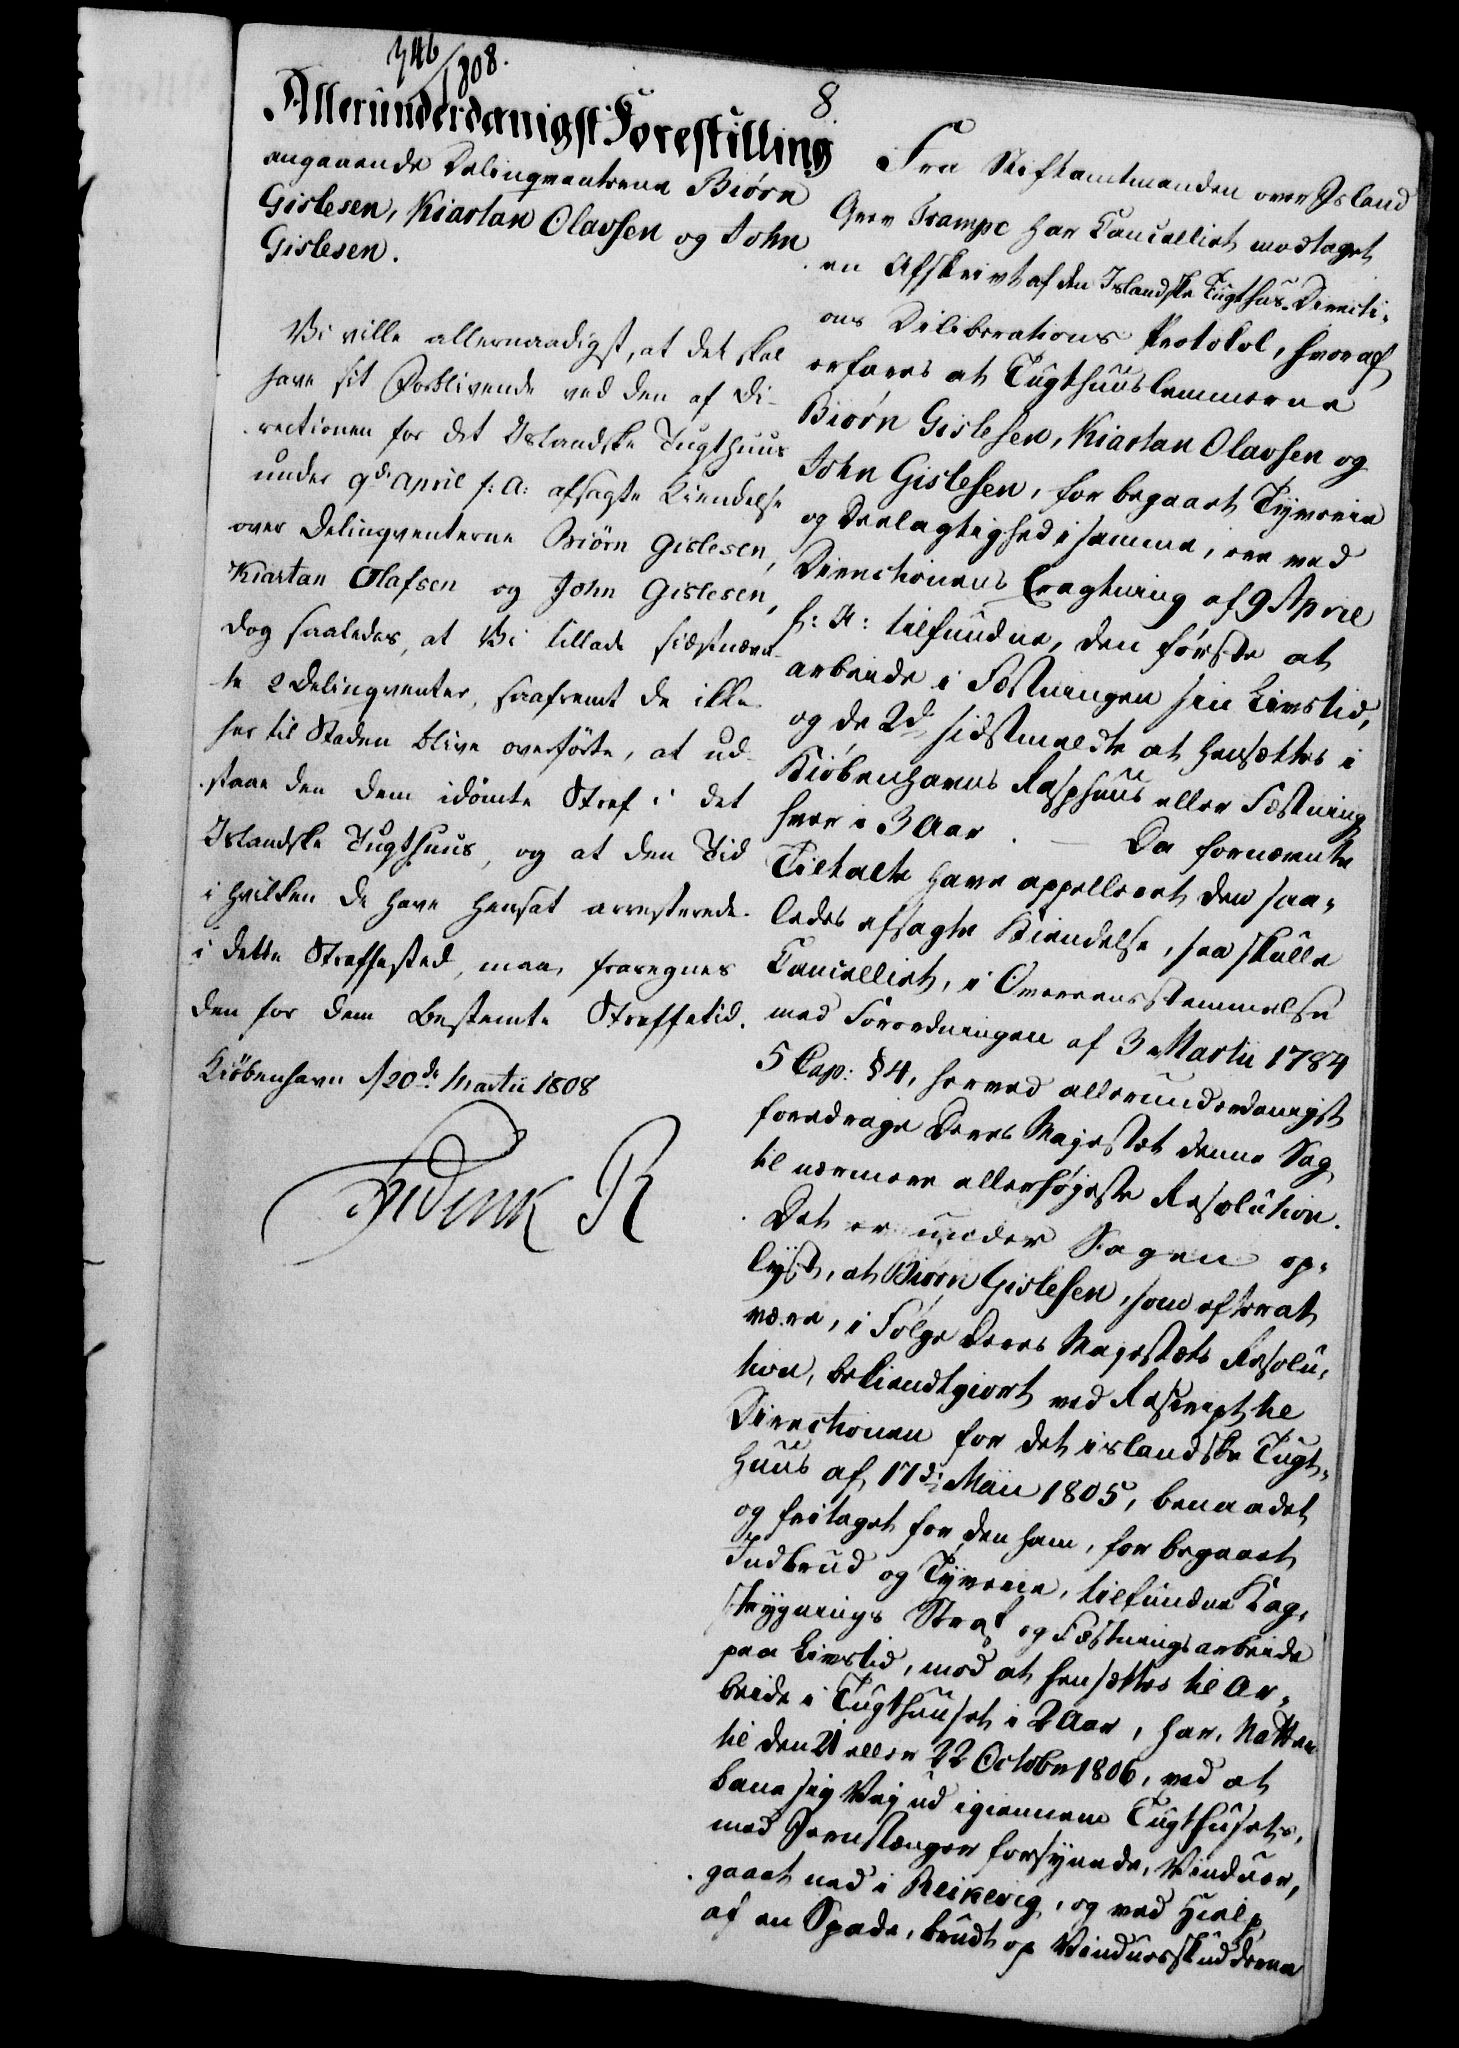 346/1808.
8.
Allerunderdanigst Forestilling
angaaende Delinqventerne Biørn
Gislesen, Kiartan Olavsen og John
Gislesen.
Vi ville allernaadigst, at det skal
have sit Forblivende ved den af Di-
rectionen for det Islandske Tugthuus
under 9de April f: A: afsagte Kiendelse
over Delinqventerne Biørn Gislesen,
Kiartan Olafsen og John Gislesen,
dog saaledes, at Vi tillade sidstnævn-
te 2 Delinqventer, saafremt de ikke
her til Staden blive overførte, at ud-
staae den dem idömte Straf i det
Islandske Tugthuus, og at den Tid
i hvilken de have hensat arresterede
i dette Straffested, maae fraregnes
den for dem bestemte Straffetid.
Kiöbenhavn d 20de Martii 1808
Frederik R
Fra Stiftamtmanden over Island
Grev Trampe har Cancelliet modtaget
en Afskrivt af den Islandske Tugthus-Directi-
ons Deliberations Protokol, hvoraf
erfares at Tugthuuslemmerne
Biørn Gislesen, Kiartan Olavsen og
John Gislesen, for begaaet Tyverie
og Deelagtighed i samme, ere ved
Directionens Eragtning af 9 April
f: A: tilfundne, den første at
arbeide i Fæstningen sin Livstid,
og de 2de sidstmeldte at hensættes i
Kiöbenhavns Rasphuus eller Fæstning
hver i 3 Aar. — Da fornævnte
Tiltalte have appelleret den saa-
ledes afsagte Kiendelse, saa skulle
Cancelliet, i Overeensstemmelse
med Forordningen af 3 Martii 1784
5 Cap: § 4, herved allerunderdanigst
foredrage Deres Majestæt denne Sag
til nærmere allerhøjeste Resolution.
Det er under Sagen op-
lyst, at Biørn Gislesen, som efter at
være, i Følge Deres Majestæts Resolu-
tion, bekiendtgiort ved Rescript til
Directionen for det islandske Tugt-
huus af 17de Maii 1805, benaadet
og fritaget for den ham, for begaaet
Indbrud og Tyverie, tilfundne Kag-
strygnings Straf og Fæstningsarbeide
paa Livstid, mod at hensættes til Ar-
beide i Tugthuuset i 2 Aar, har, Natten
til den 21 eller 22 Octobr 1806, ved at
bane sig Vej ud igiennem Tugthusets,
med Jernstænger forsynede, Vinduer,
gaaet ned i Reikevig, og ved Hielp
af en Spade, brudt op Vinduesskudderne